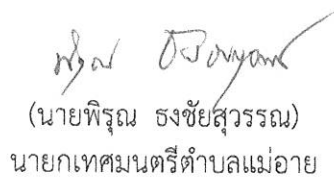 (นายพิรุณ ธงชัยสุวรรณ)
นายกเทศมนตรีตำบลแม่อาย